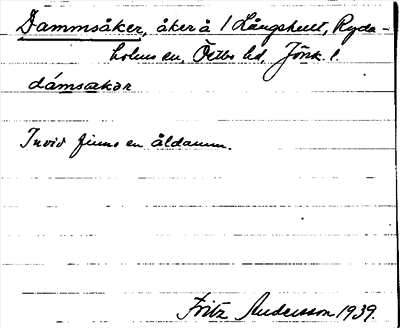 Dammsåker, åker å 1 Långhult, Ryda-
holms sn, Östbo hd, Jönk. l.
dámsakər
Invid finns en åldamm.
Fritz Andersson 1939.